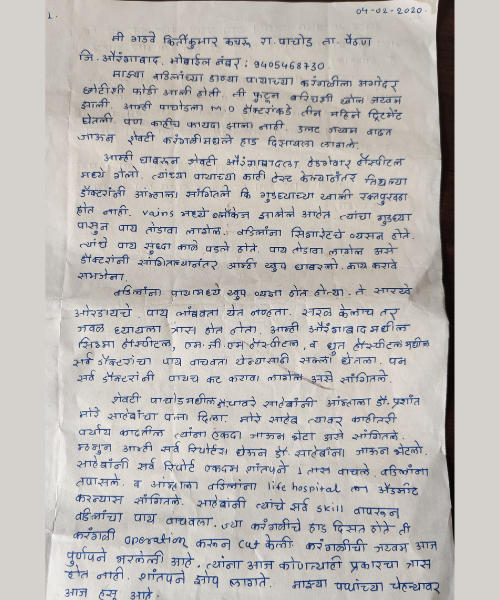 1.
04-02-2020.
मी गडवे किर्तीकुमार कचरू रा. पाचोड ता. पैठण
जि. औरंगाबाद. मोबाईल नंबर : 9405468730
माझ्या वडिलांच्या डाव्या पायाच्या करंगळीला अगोदर
छोटीशी फोडी आली होती. ती फुटून बरीचशी खोल जखम
झाली. आम्ही पाचोडला M.O डॉक्टरांकडे तीन महिने ट्रिटमेंट
घेतली. पण काहीच फायदा झाला नाही. उलट जखम वाढत
जाऊन शेवटी करंगळीमधले हाड दिसायला लागले.
आम्ही घाबरून शेवटी औरंगाबादला हेडगेवार हॉस्पीटल
मध्ये गेलो. त्यांच्या पायाच्या काही टेस्ट केल्यानंतर तिथल्या
डॉक्टरांनी आम्हाला सांगितले कि गुडघ्याच्या खाली रक्तपुरवठा
होत नाही. vains मध्ये ब्लॉकेज झालेले आहेत त्यांचा गुडघ्या
पासुन पाय तोडावा लागेल. वडिलांना सिगारेटचे व्यसन होते.
त्यांचे पाय सुध्दा काळे पडले होते. पाय तोडावा लागेल असे
डॉक्टरांनी सांगितल्यानंतर आम्ही खुप घाबरलो. काय करावे
समजेना.
वडिलांना पायामध्ये खुप व्यथा होत होत्या. ते सारखे
ओरडायचे. पाय लांबवता येत नव्हता. सरळ केलाच तर
जवळ घ्यायला त्रास होत होता. आम्ही औरंगाबादमधील
सिग्मा हॉस्पीटल, एम.जी.एम हॉस्पीटल, व धुत हॉस्पीटल मधील
सर्व डॉक्टरांचा पाय वाचवता येण्यासाठी सल्ला घेतला. पन
सर्व डॉक्टरांनी पायच कट करावा लागेल असे सांगितले.
शेवटी पाचोडमधील साहेबांनी आम्हाला डॉ. प्रशांत
मोरे साहेबांचा पत्ता दिला. मोरे साहेब त्यावर काहीतरी
पर्याय काढतील त्यांना एकदा जाऊन भेटा असे सांगितले.
म्हणुन आम्ही सर्व रिपोर्टस् घेऊन डॉ. साहेबांना जाऊन भेटलो.
साहेबांनी सर्व रिपोर्ट एकदम शांतपने 1 तास वाचले. वडिलांना
तपासले. व आम्हाला वडिलांना life hospital ला अ‍ॅडमीट
करन्यास सांगितले. साहेबांनी त्यांचे सर्व skill वापरून
वडिलांचा पाय वाचवला. ज्या करंगळीचे हाड दिसत होते ती
करंगळी operation करून cut केली. करंगळीची जखम आज
पुर्णपने भरलेली आहे. त्यांना आज कोणत्याही प्रकारचा त्रास
होत नाही. शांतपने झोप लागते. माझ्या पप्पांच्या चेहऱ्यावर
आज हसू आहे.